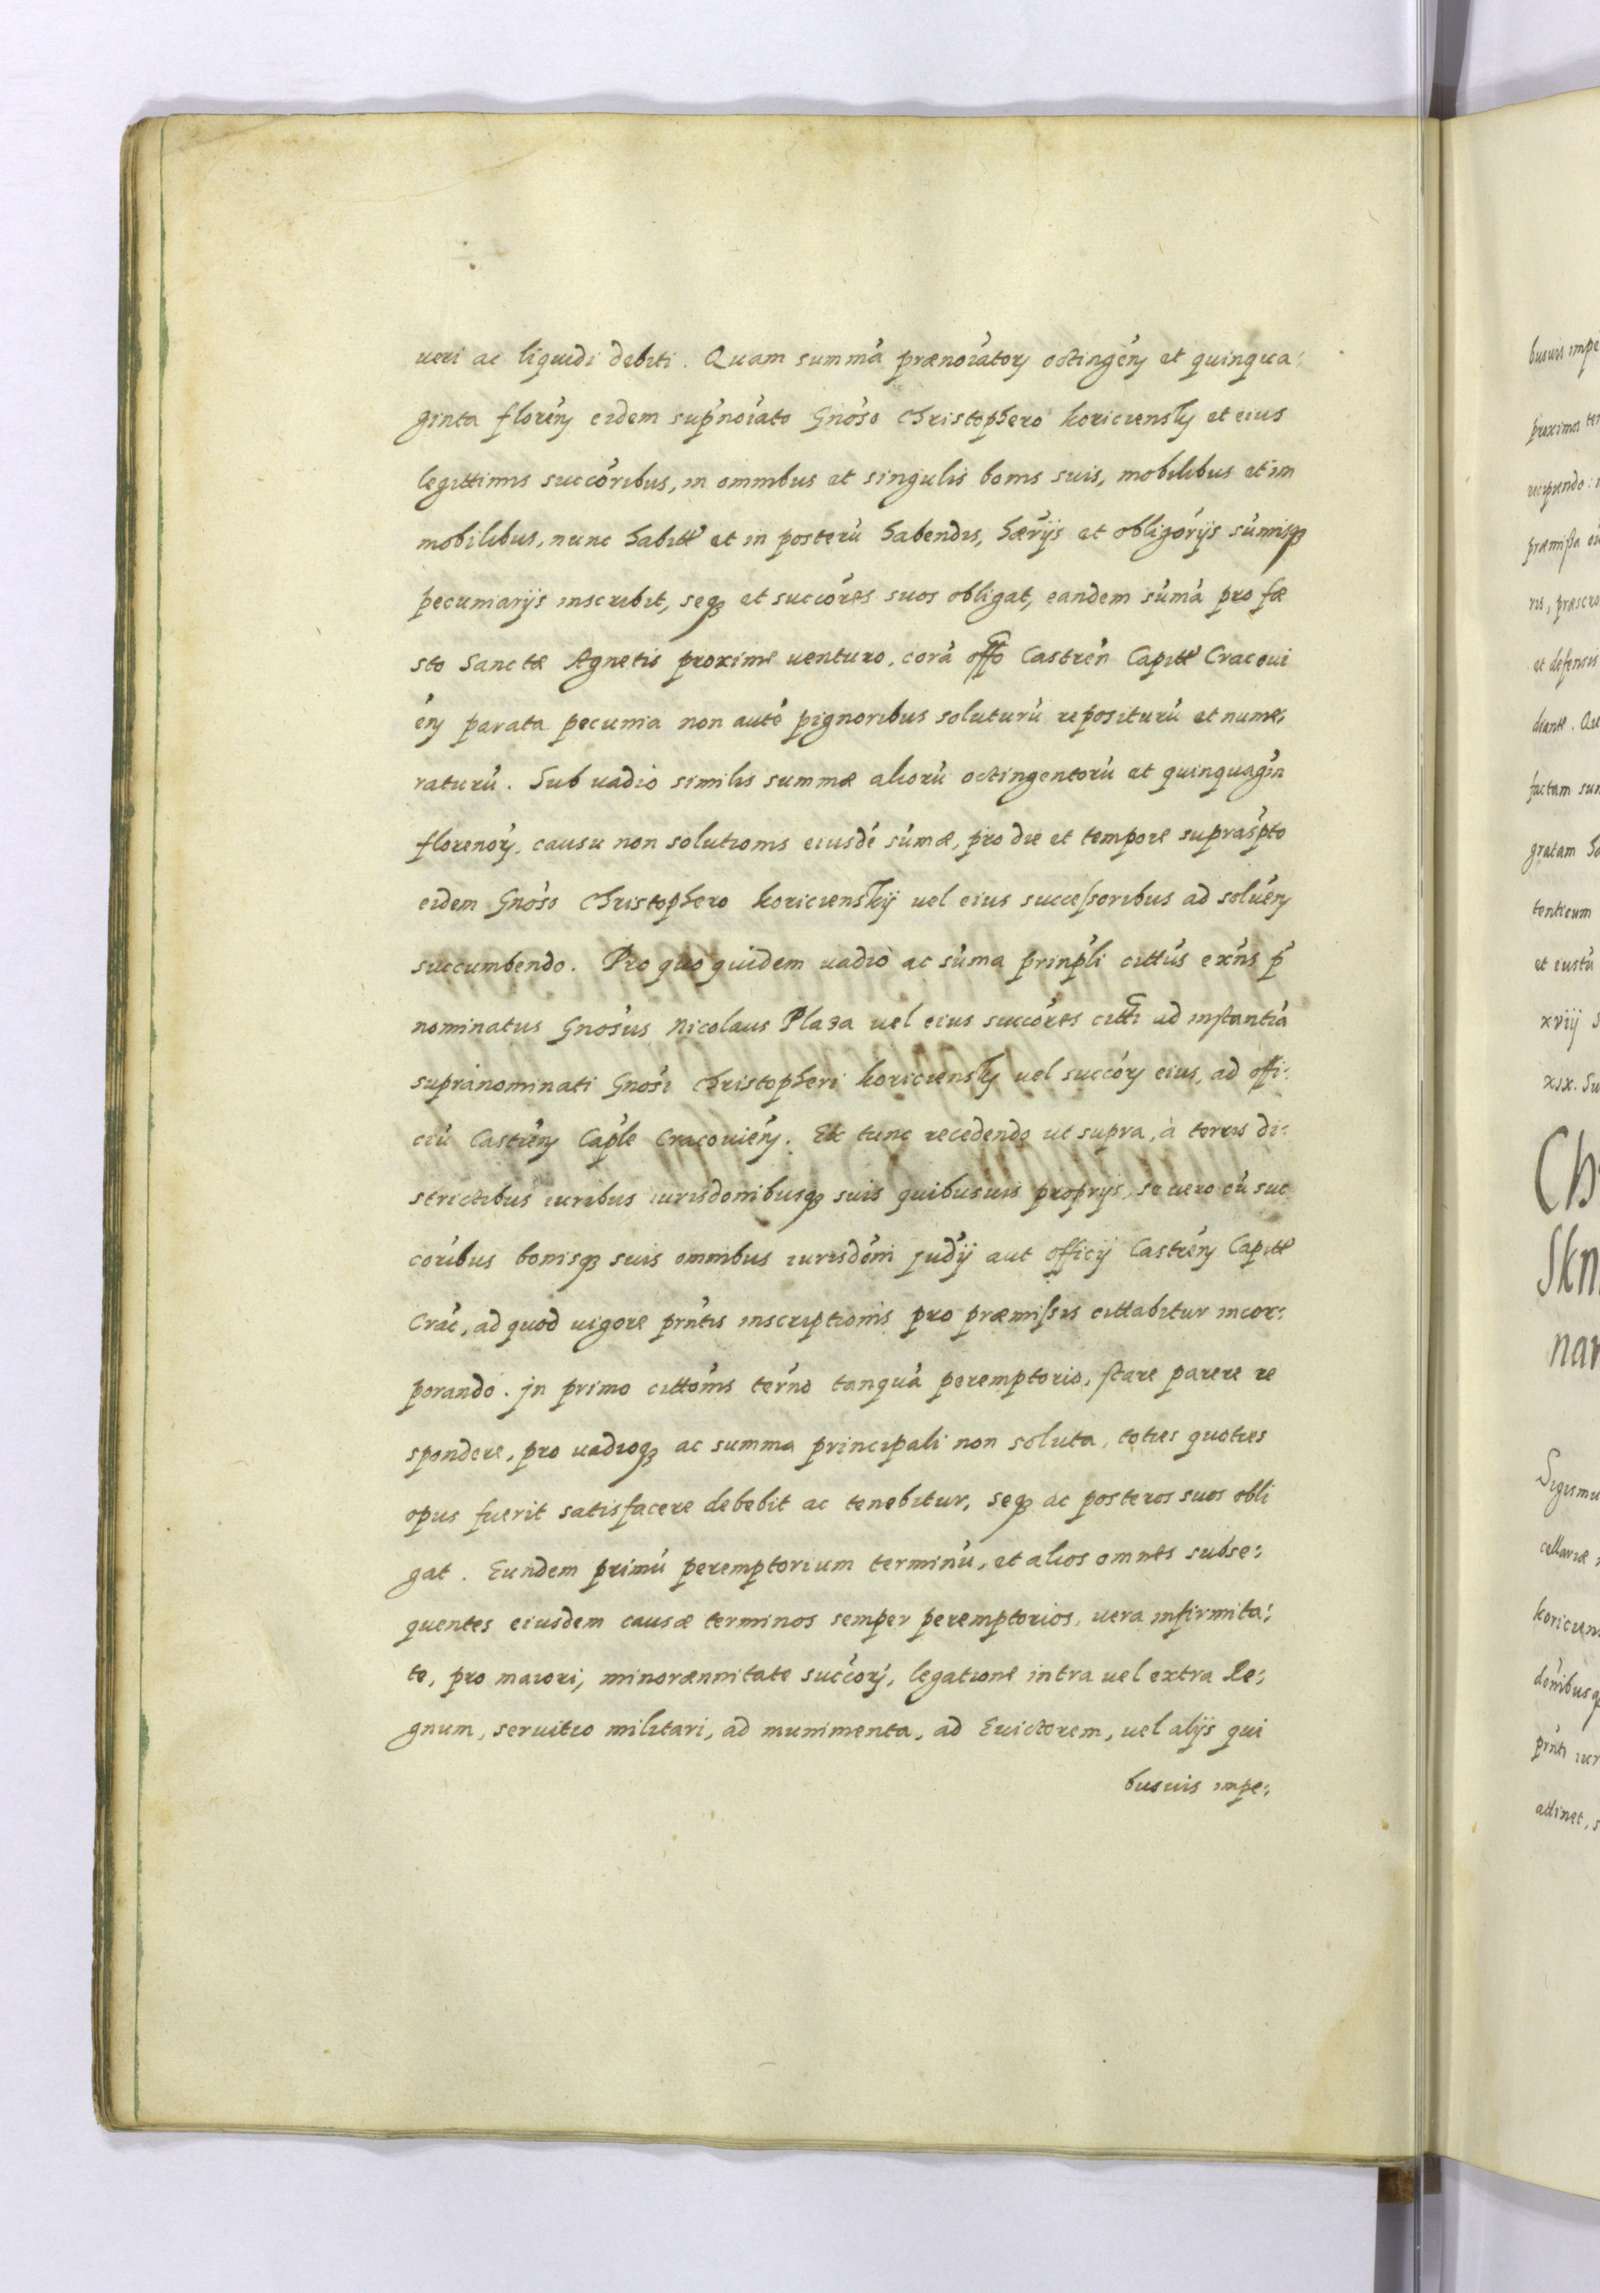 ueri ac liquidi debiti. Quam summá prænoíatorỹ octingéñ et quinqua:
ginta floréñ eidem sup'noíato Gnóso Christophero Koriciensky et eius
legittimis succóribus, in omnibus et singulis bonis suis, mobilibus et im
mobilibus, nunc habitt' et in posterú habendis, hærijs et obligórijs súmisq3
pecuniarijs inscribit, seq3 et succóres suos obligat, eandem súmá pro fæ
sto Sanctæ Agnetis proxime venturo, corá offo Castrén Capitt' Cracoui
éñ parata pecunia non auté pignoribus soluturú repositurú et nume:
raturú. Sub uadio similis summæ aliorú octingentorú et quinquagin
florenorỹ, causu non solutionis eiusdé súmæ, pro die et tempore suprasp'to
eidem Gnóso Christophero Koriciensky uel eius successoribus ad soluéñ
succumbendo. Pro quo quidem uadio ac súma prinp'li cittús exńs p'
nominatus Gnósus Nicolaus Plaza uel eius succóres citti ad instantiá
supranominati Gnósi Christopheri Koriciensky uel succorỹ eius, ad offi:
ciú Castréñ Cap'le Cracouiéñ. Ex tunc recedendo ut supra, à terris di:
strictibus iuribus iurisdonibusq3 suis quibusuis proprijs, se uero cú suc
córibus bonisq3 suis omnibus iurisdóni judỹ aut officij Castréñ Capitt'
Crać, ad quod uigore prńtis inscriptionis pro præmissis cittabitur incor:
porando. In primo cittónis térno tanquá peremptorio, stare parere re
spondere, pro uadioq3 ac summa principali non soluta, toties quoties
opus fuerit satisfacere debebit ac tenebitur, seq3 ac posteros suos obli
gat. Eundem primú peremptorium terminú, et alios omnes subse:
quentes eiusdem causæ terminos semper peremptorios, uera infirmita:
te, pro maiori, minorænnitate succorỹ, legatione intra uel extra Re:
gnum, seruitio militari, ad munimenta, ad Euictorem, uel alijs qui
busuis impe: